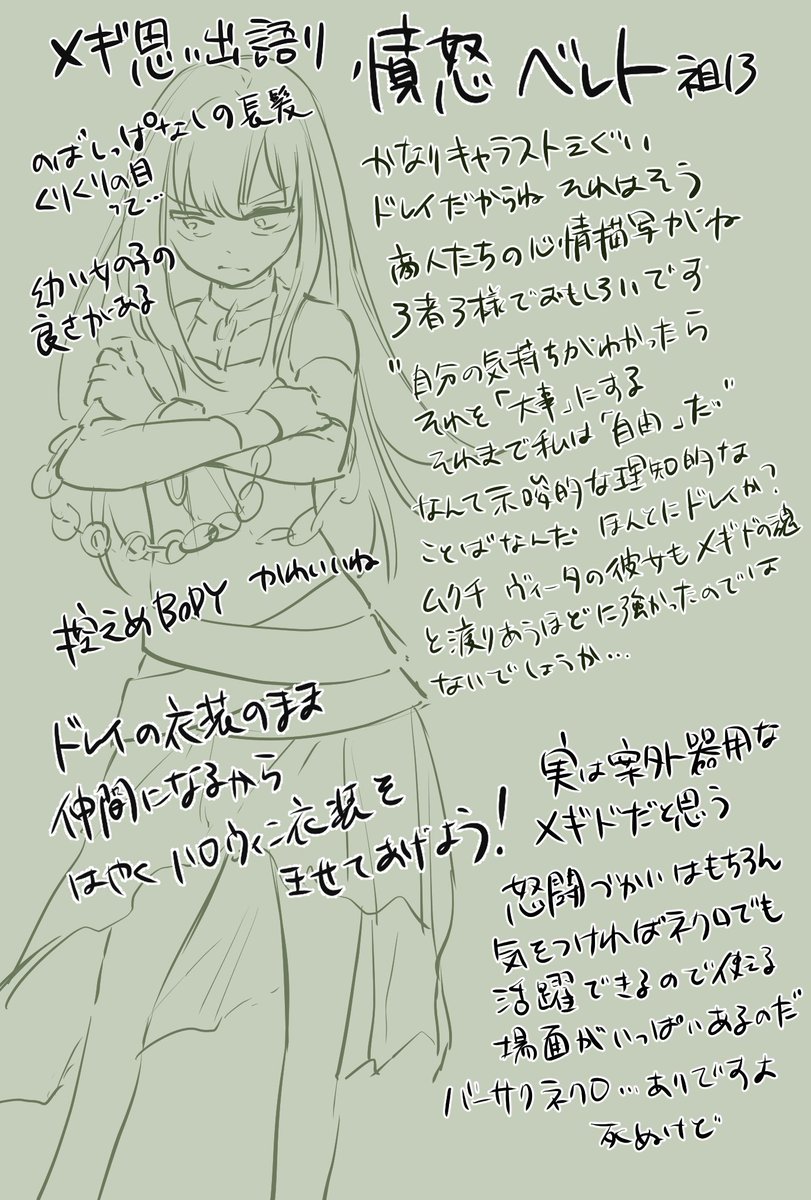 メギド思い出語り
憤怒 ベレト 祖13
のばしっぱなしの長髪
くりくりの目
って…
幼い女の子の
良さがある
かなりキャラストえぐい
ドレイだからね それはそう
商人たちの心情描写がね
3者3様でおもしろいです
"自分の気持ちがわかったら
それを「大事」にする
それまで私は「自由」だ"
なんて示唆的な理知的な
ことばなんだ ほんとにドレイか?
ムクチ ヴィータの彼女もメギドの魂
と渡りあうほどに強かったのでは
ないでしょうか…
控えめBODY かわいいね
ドレイの衣装のまま
仲間になるから
はやくハロウィン衣装を
きせてあげよう!
実は案外器用な
メギドだと思う
怒闘づかいはもちろん
気をつければネクロでも
活躍できるので使える
場面がいっぱいあるのだ
バーサクネクロ…ありですよ
死ぬけど